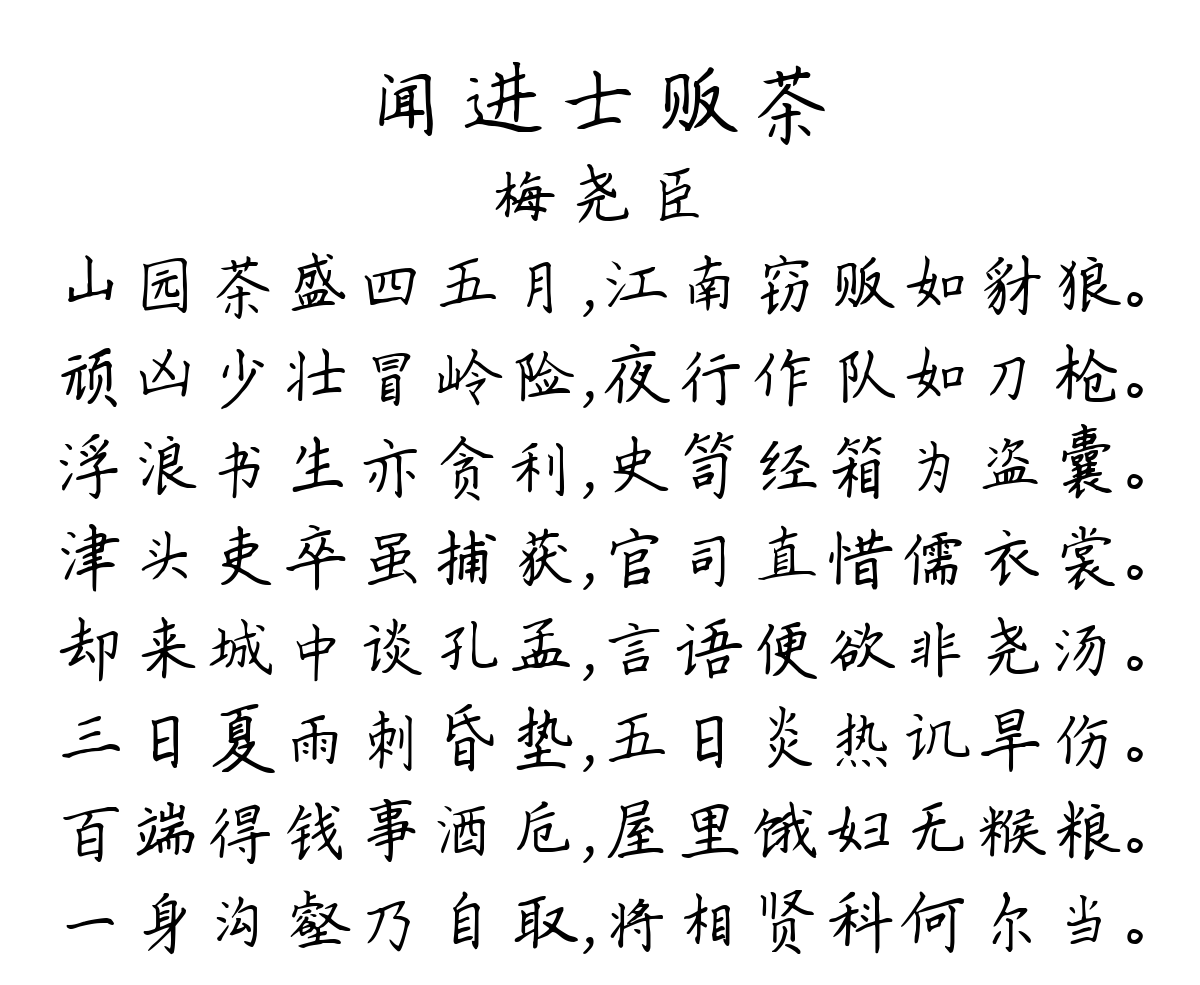 闻进士贩茶
梅尧臣
山园茶盛四五月,江南窃贩如豺狼。
顽凶少壮冒岭险,夜行作队如刀枪。
浮浪书生亦贪利,史笥经箱为盗囊。
津头吏卒虽捕获,官司直惜儒衣裳。
却来城中谈孔孟,言语便欲非尧汤。
三日夏雨刺昏垫,五日炎热讥旱伤。
百端得钱事酒卮,屋里饿妇无糇粮。
一身沟壑乃自取,将相贤科何尔当。